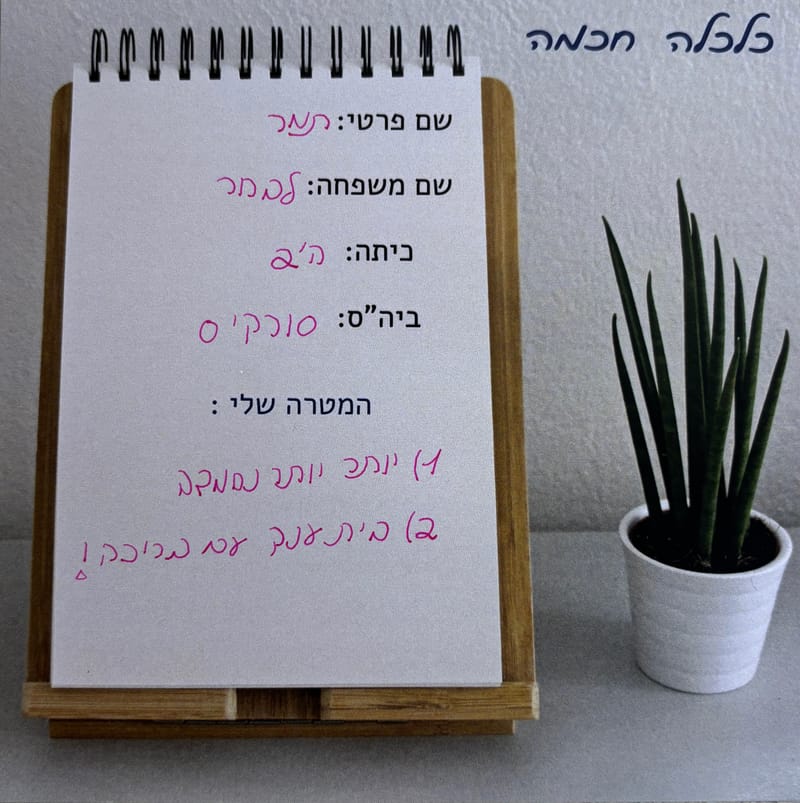 כלכלה חכמה
שם פרטי: תמר
שם משפחה: לבחר
כיתה: ה'2
ביה"ס: סורקיס
המטרה שלי :
1) יותר יותר נחמדה
2) בית ענק עם בריכה!